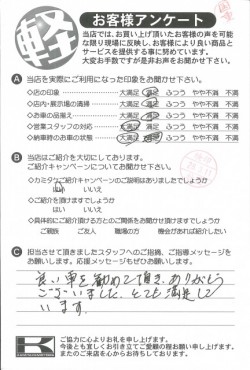 軽
お客様アンケート
当店では、お買い上げ頂いたお客様の声を可能
な限り現場に反映し、お客様により良い商品と
サービスを提供する事に努めています。
大変お手数ですが是非お声をお聞かせ下さい。
A 当店を実際にご利用になった印象をお聞かせ下さい。
◇店の印象 大満足 満足 ふつう やや不満 不満
◇店内・展示場の清掃 大満足 満足 ふつう やや不満 不満
◇お車の品揃え 大満足 満足 ふつう やや不満 不満
◇営業スタッフの対応 大満足 満足 ふつう やや不満 不満
◇納車時のお車の状態 大満足 満足 ふつう やや不満 不満
B 当店はご紹介を大切にしております。
ご紹介キャンペーンについてお聞かせ下さい。
◇カミタケご紹介キャンペーンのご説明はありましたでしょうか
はい いいえ
◇ご紹介を頂けますでしょうか
はい いいえ
◇具体的にご紹介頂ける方との関係をお聞かせ頂けますでしょうか
ご親族 ご友人 職場の方 機会があれば紹介したい
C 担当させて頂きましたスタッフへのご指摘、ご指導メッセージを
お願いします。応援メッセージもぜひお願いします。
良い車を勧めて頂き、ありがとう
ございました。とても満足して
います。
ご協力に心よりお礼を申し上げます。
今後とも宜しくお引き立てご愛顧の程お願い申し上げます。
またのご来店を心からお待ちしております。